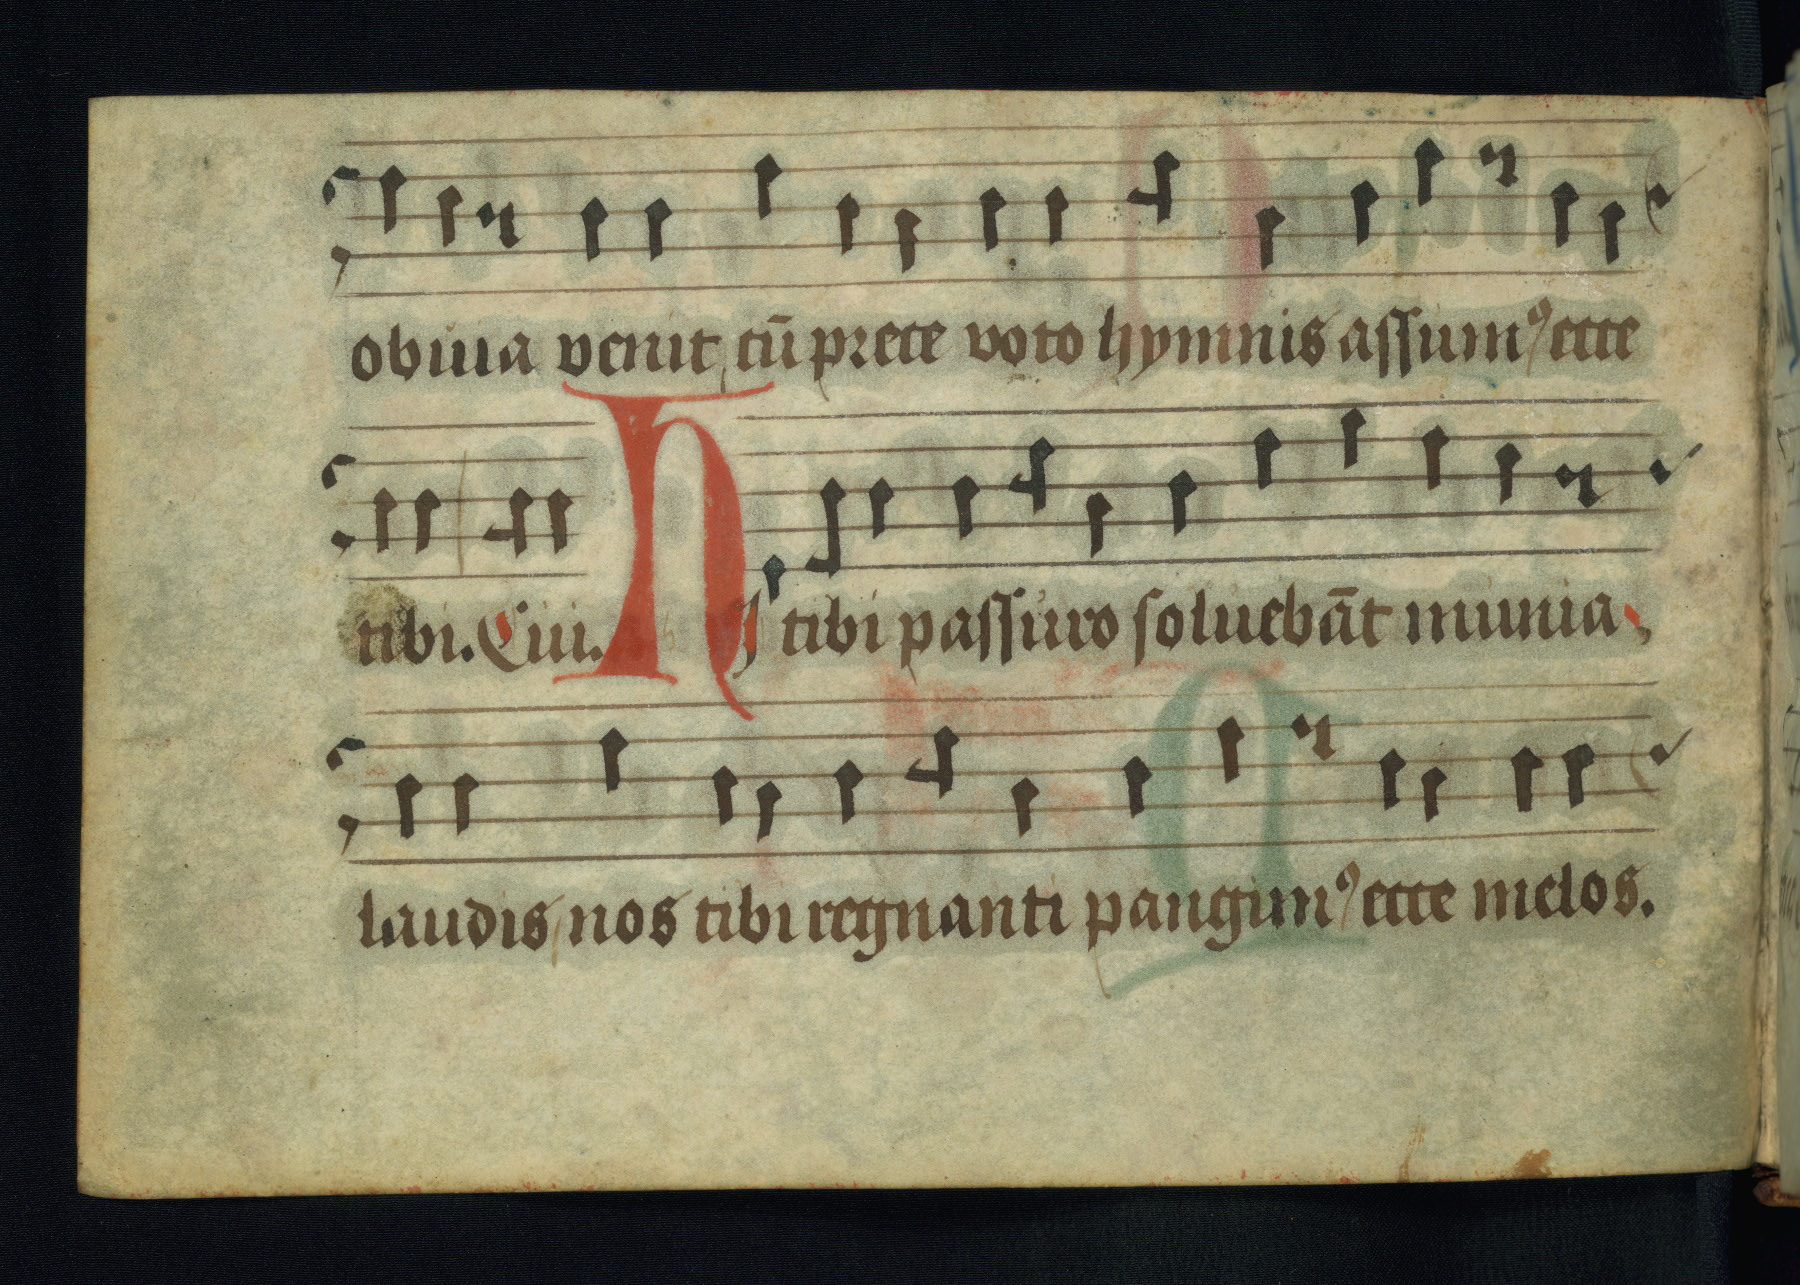 obuia venit, cū prece voto hymnis assumꝰ ecce
tibi. Cui. HI tibi passuro soluebāt munia
laudis, nos tibi regnanti pangimꝰ ecce melos.